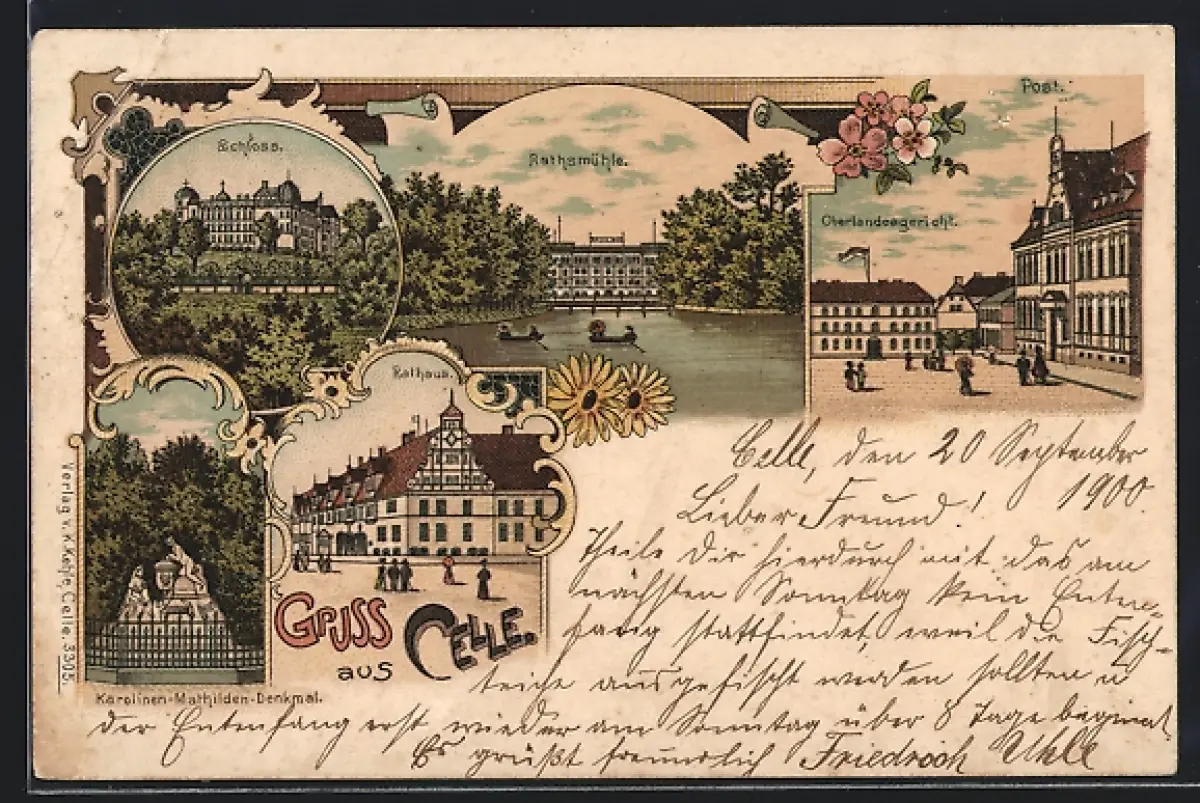 Schloss.
Rathsmühle.
Post.
Oberlandesgericht.
Rathaus.
Karolinen-Mathilden-Denkmal.
Gruss
aus Celle.
Verlag v. K. Kehe, Celle. 3305.
Celle, den 20 September
1900.
Lieber Freund!
Theile Dir hierdurch mit das am
nächsten Sonntag kein Enten-
fang stattfindet, weil die Fisch-
teiche ausgefischt werden sollten u
der Entenfang erst wieder am Sonntag über 8 Tage beginnt
Es grüßt freundlich Friedrich Uhle